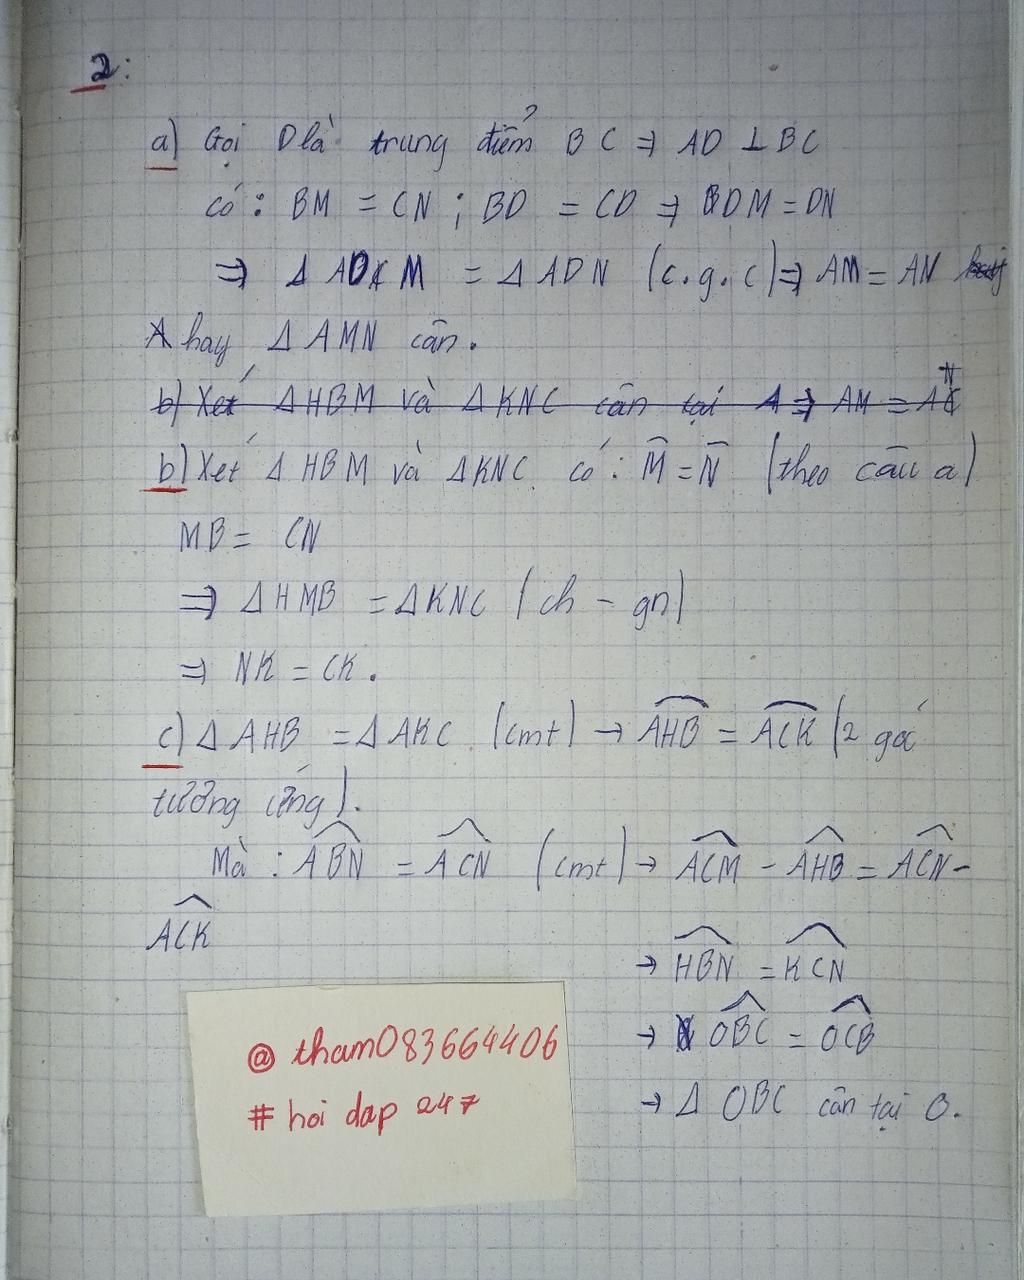 2:
a) Gọi D là trung điểm BC ⇒ AD ⊥ BC
có: BM = CN ; BD = CD ⇒ DM = DN
⇒ Δ ADM = Δ ADN (c.g.c) ⇒ AM = AN
hay Δ AMN cân.
b) Xét Δ HBM và Δ KNC cân tại A ⇒ AM = AN
b) Xét Δ HBM và Δ KNC có: M̂ = N̂ (theo câu a)
MB = CN
⇒ Δ HMB = Δ KNC (ch - gn)
⇒ NK = CK.
c) Δ AHB = Δ AKC (cmt) → \widehat{AHB} = \widehat{ACK} (2 góc
tướng ứng).
Mà : \widehat{ABN} = \widehat{ACN} (cmt) → \widehat{ACM} - \widehat{AHB} = \widehat{ACN} -
\widehat{ACK}
→ \widehat{HBN} = \widehat{KCN}
→ \widehat{OBC} = \widehat{OCB}
→ Δ OBC cân tại O.
@ tham083664406
# hoi dap 247